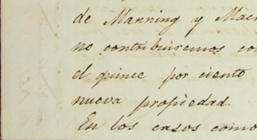 de Manning y Mac
no contribuiremos co
el quince por ciento
nueva propiedad.
En los casos como